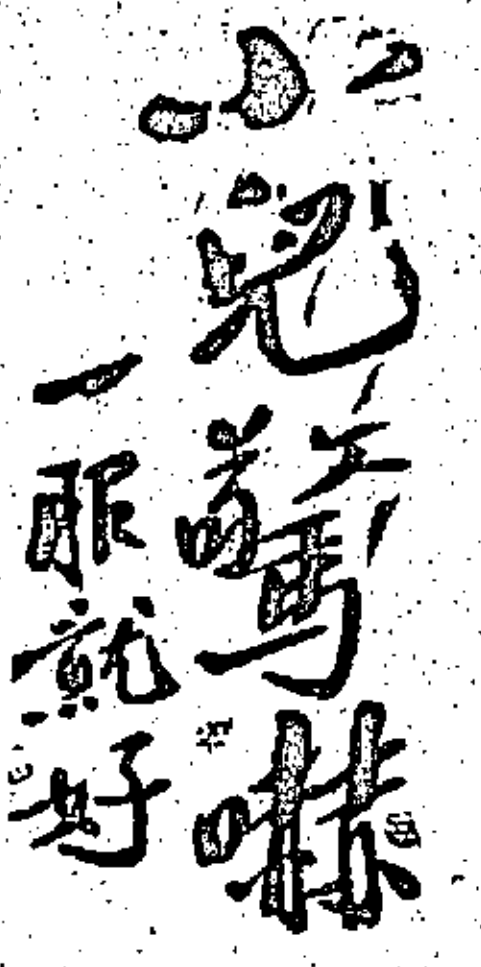 小兒驚嚇
一服就好